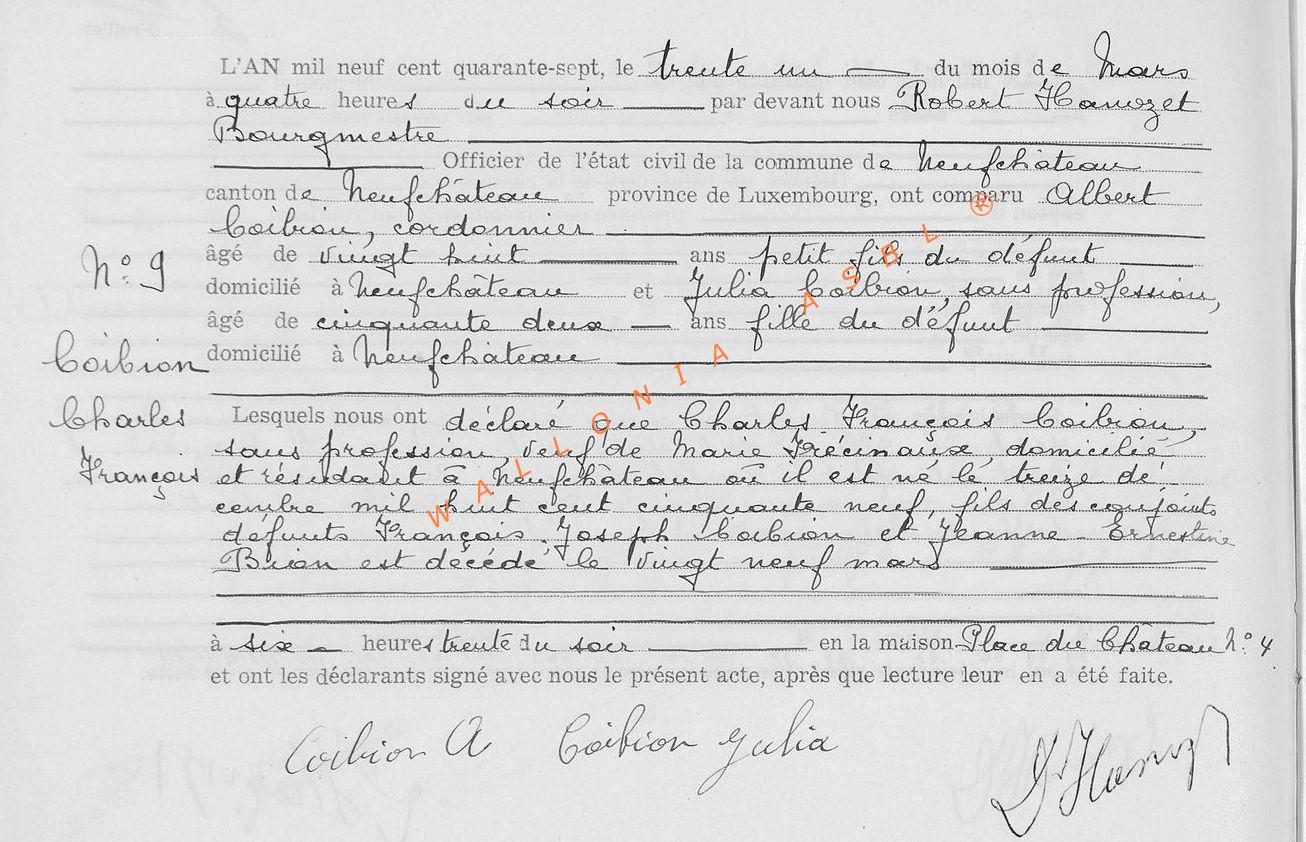 L'AN mil neuf cent quarante-sept, le trente un du mois de Mars
à quatre heures du soir par devant nous Robert
Bourgmestre
Officier de l'état civil de la commune de Neufchâteau
canton de Neufchâteau province de Luxembourg, ont comparu Albert
Coibion, cordonnier
N° 9
âgé de vingt huit ans petit fils du défunt
domicilié à Neufchâteau et Julia Coibion, sans profession,
âgé de cinquante deux ans fille du défunt
Coibion
domicilié à Neufchâteau
Charles
Lesquels nous ont déclaré que Charles François Coibion,
sans profession, veuf de Marie Frécinaux, domicilié
François
et résidant à Neufchâteau où il est né le treize dé-
cembre mil huit cent cinquante neuf, fils des conjoints
défunts François Joseph Coibion et Jeanne-Ernestine
Brion est décédé le vingt neuf mars
à six heures trente du soir en la maison Place du Château N° 4
et ont les déclarants signé avec nous le présent acte, après que lecture leur en a été faite.
Coibion A Coibion Julia
WALLONIA ASBL ®